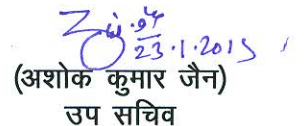 23.1.2015
(अशोक कुमार जैन)
उप सचिव